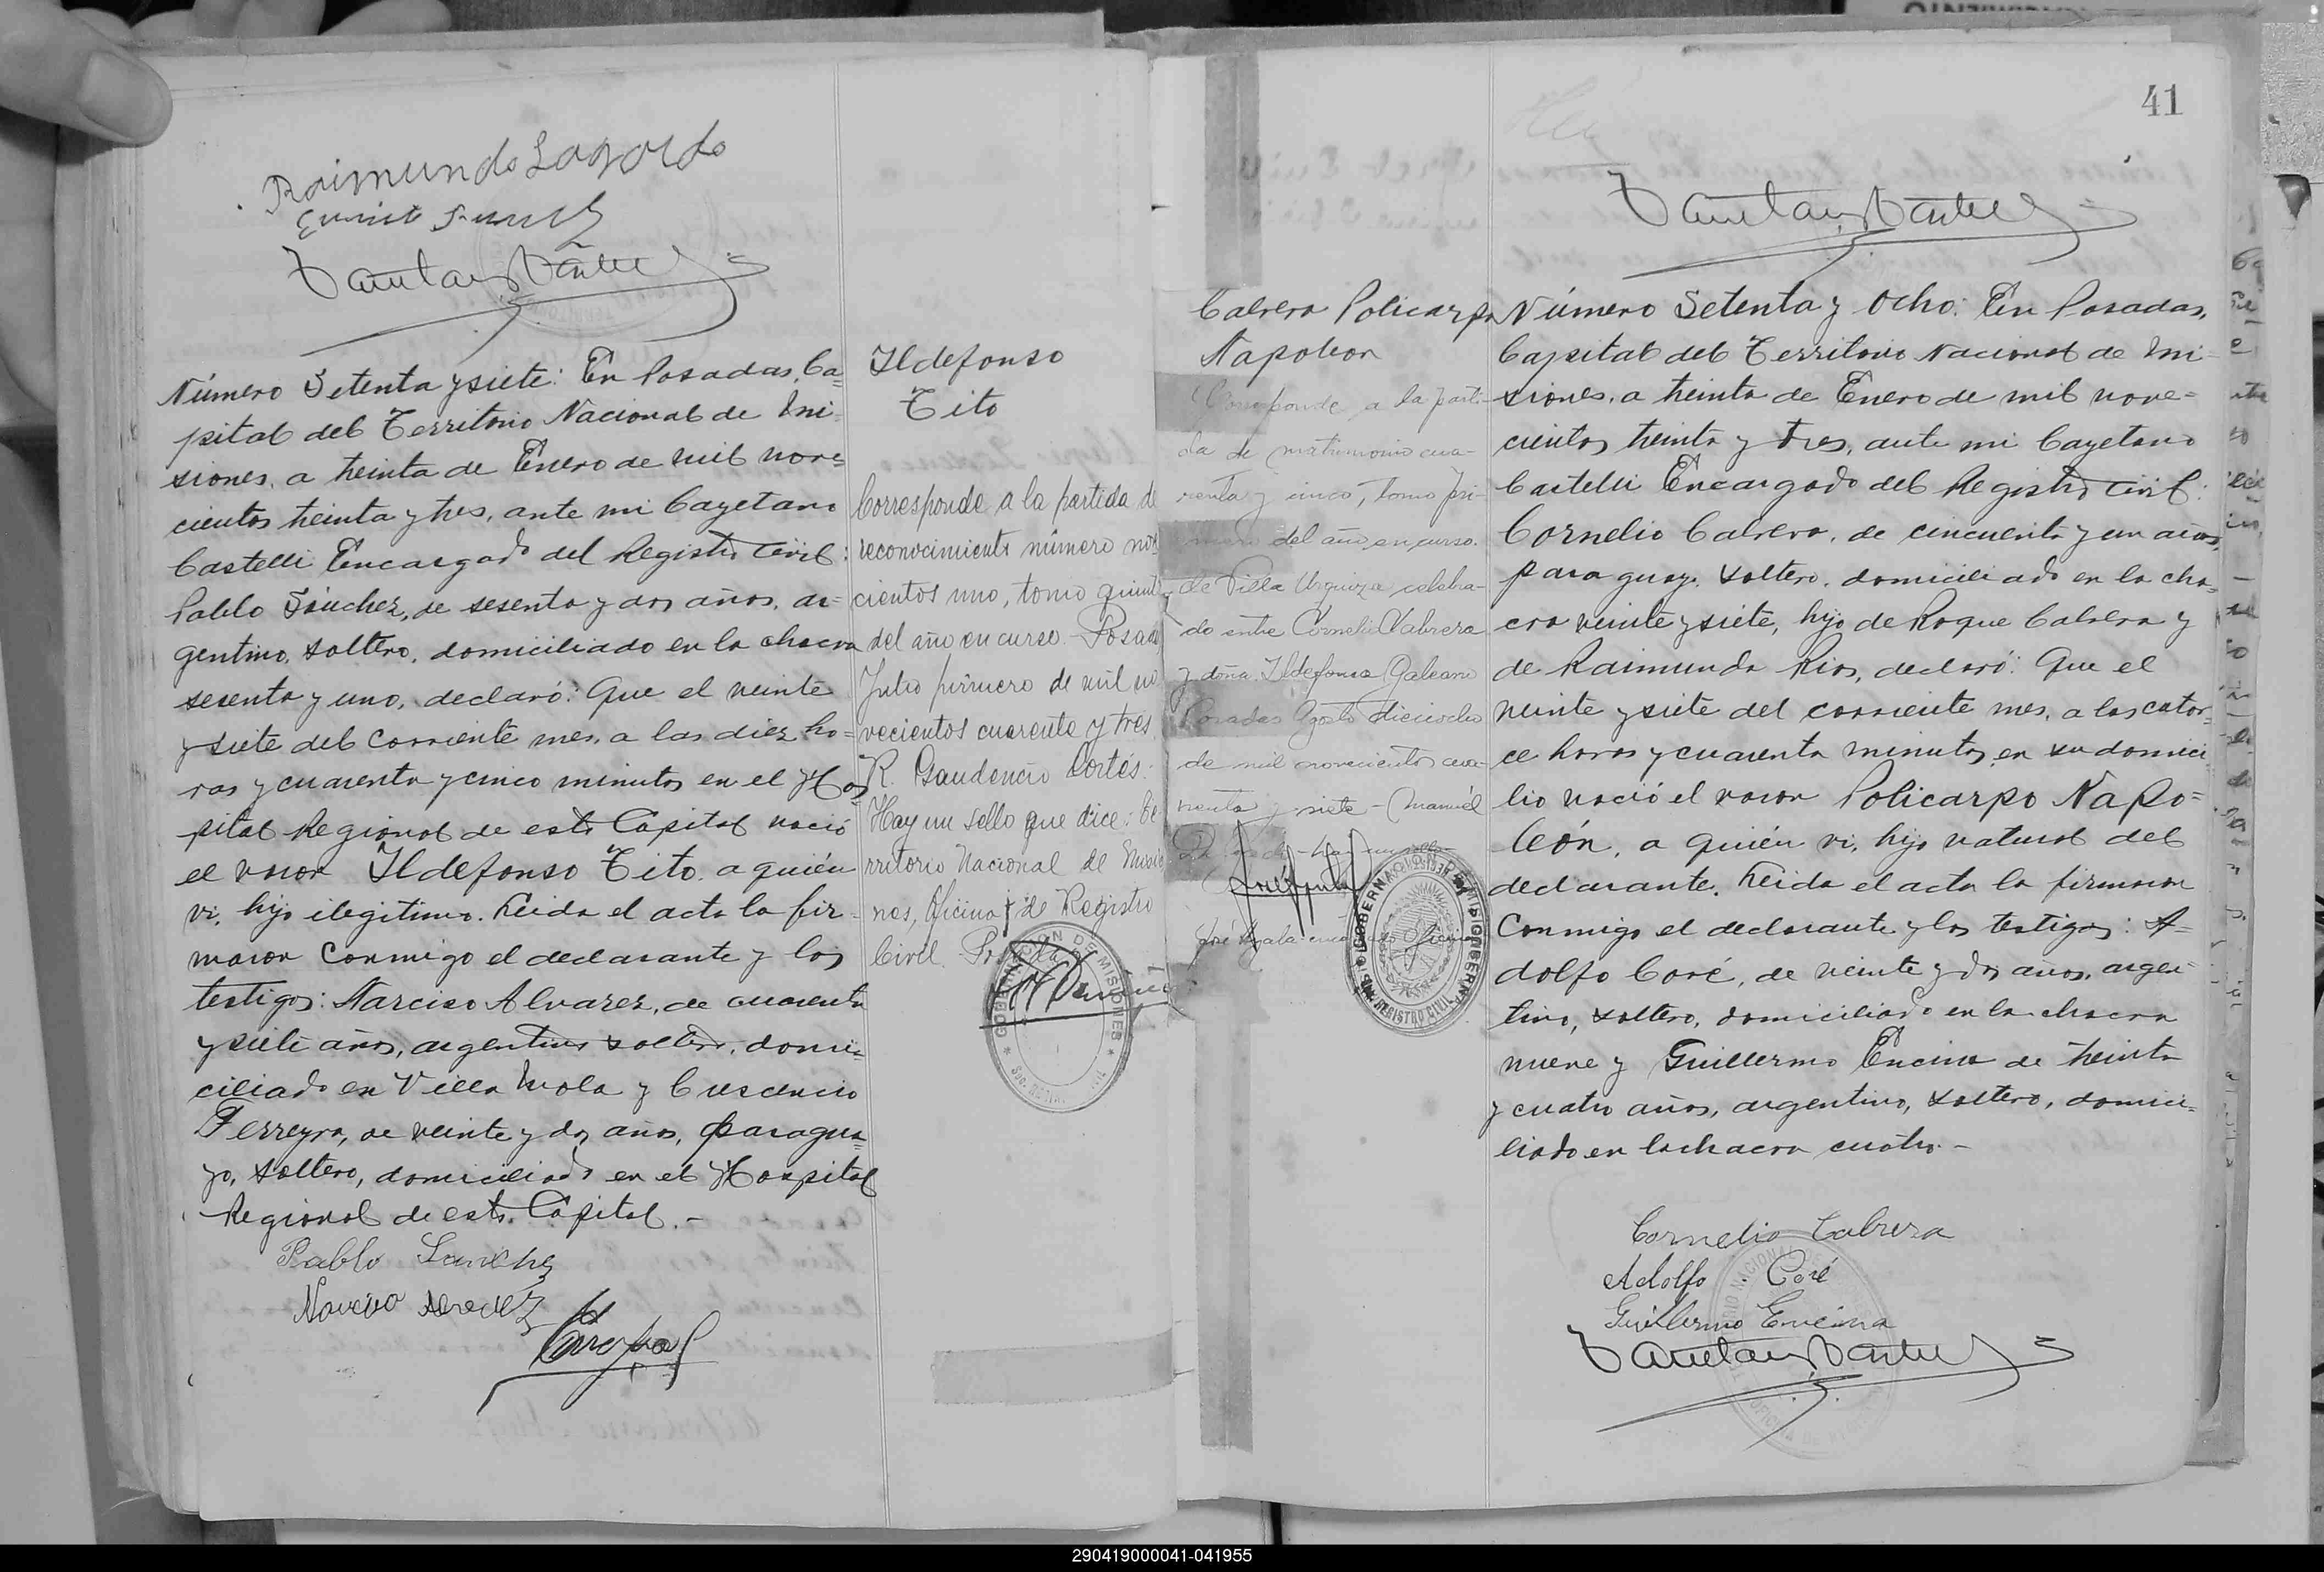 Raimundo
Número Setenta y siete: En Posadas, Ca=
pital del Territorio Nacional de Mi-
siones, a treinta de Enero de mil nove=
cientos treinta y tres, ante mi Cayetano
Castelli Encargado del Registro Civil:
Pablo Sánchez, de sesenta y dos años, ar=
gentino, soltero, domiciliado en la chacra
sesenta y uno, declaró: Que el veinte
y siete del corriente mes, a las diez ho=
ras y cuarenta y cinco minutos en el Hos
pital Regional de esta Capital nació
el varon Ildefonso Tito, a quién
vi, hijo ilegitimo. Leida el acta la fir-
maron conmigo el declarante y los
testigos: Narciso Alvarez, de cuarenta
y siete años, argentino soltero, domi=
ciliado en Villa Mola y Crescencio
Ferreyra, de veinte y dos años, paragua=
yo, soltero, domiciliado en el Hospital
Regional de esta Capital.-
Pablo Sanchez
Ildefonso
Tito
Corresponde a la partida de
reconocimiento número nove
cientos uno, tomo quinto
del año en curso. Posadas
Julio primero de mil no
vecientos cuarenta y tres.
R. Gaudencio Cortés.
Hay un sello que dice: Te
rritorio Nacional de Misio
nes, Oficina de Registro
Civil.
GOBERNACION DE MISIONES
41
Cabrera Policarpo
Napoleon
Corresponde a la parti-
da de matrimonio cua-
renta y cinco, tomo pri-
mero del año en curso.
de Villa Urquiza celebra-
do entre Cornelio Cabrera
y doña Ildefonsa Galeano
Posadas Agosto dieciocho
de mil novecientos cua-
renta y siete - Manuel
REGISTRO CIVIL
Número Setenta y Ocho: En Posadas,
Capital del Territorio Nacional de Mi-
siones, a treinta de Enero de mil nove=
cientos treinta y tres, ante mi Cayetano
Castelli Encargado del Registro Civil:
Cornelio Cabrera, de cincuenta y un años,
paraguayo, soltero, domiciliado en la cha-
cra veinte y siete, hijo de Roque Cabrera y
de Raimunda Rios, declaró: Que el
veinte y siete del corriente mes, a las cator-
ce horas y cuarenta minutos en su domici-
lio nació el varon Policarpo Napo=
león, a quién vi, hijo natural del
declarante. Leida el acta la firmaron
conmigo el declarante y los testigos: A=
dolfo Coré, de veinte y dos años, argen-
tino, soltero, domiciliado en la chacra
nueve y Guillermo Encina de treinta
y cuatro años, argentino, soltero, domici=
liado en la chacra cuatro.-
Cornelio Cabrera
Adolfo Coré
Guillermo Encina
290419000041-041955